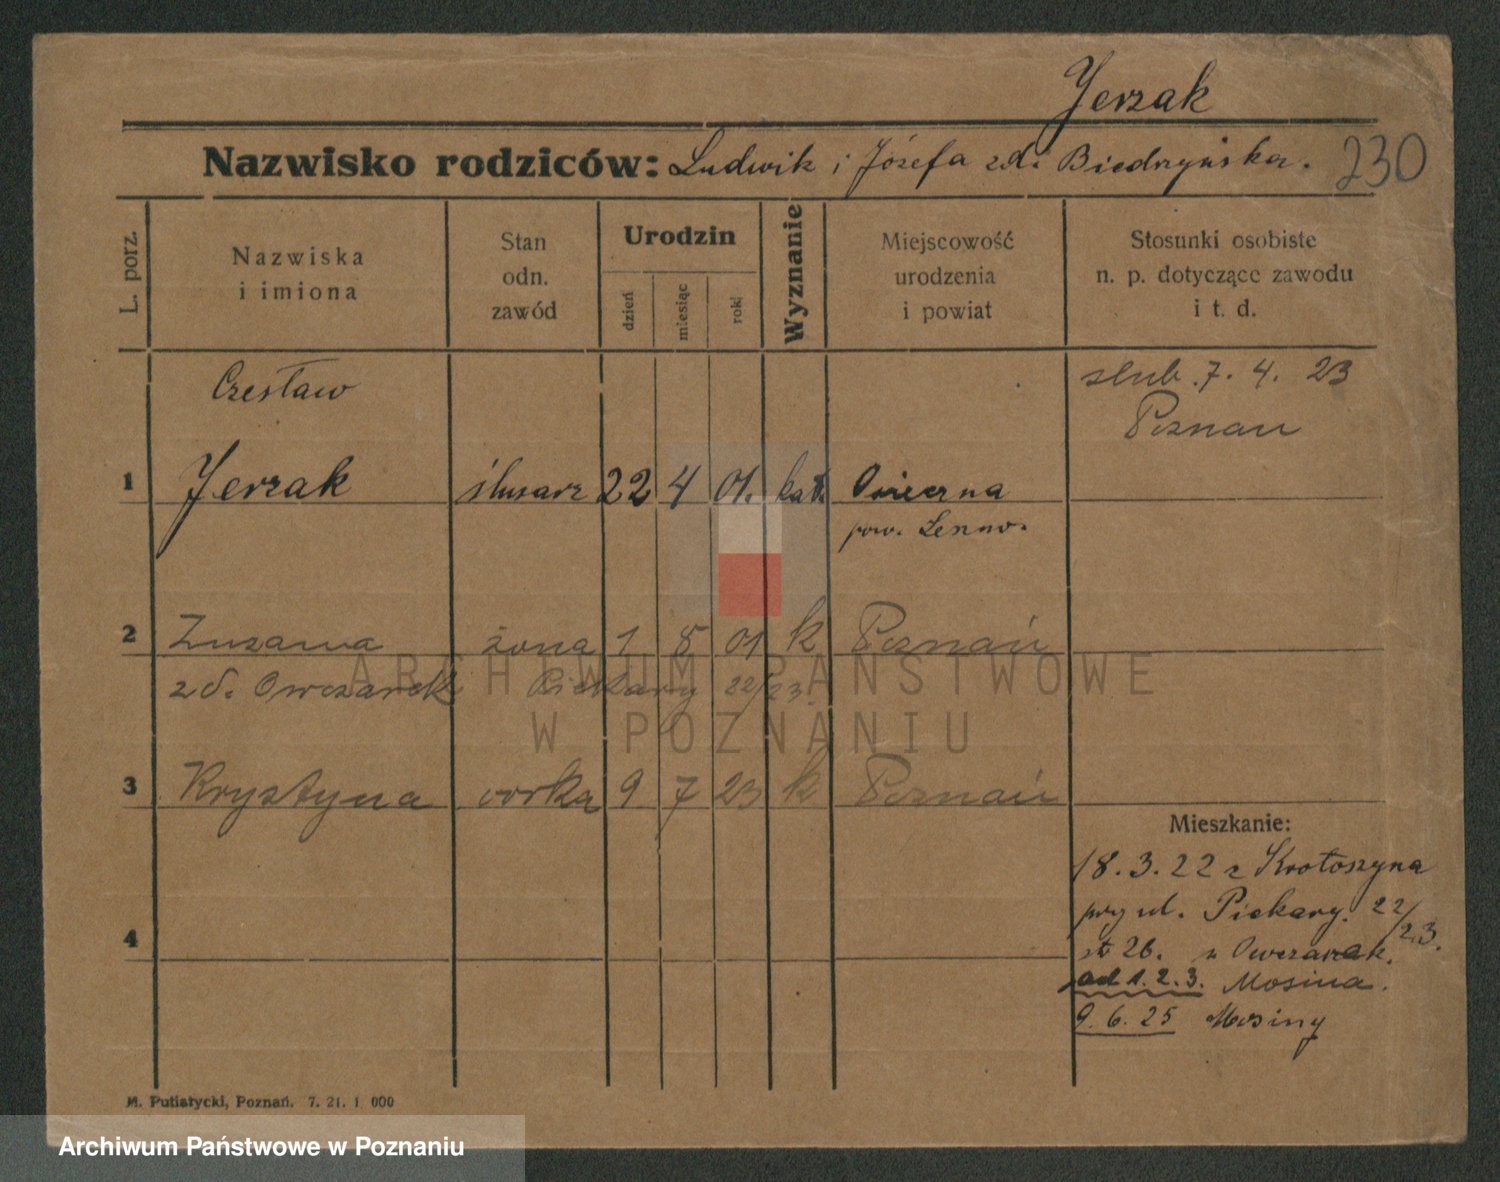 Jerzak
Nazwisko rodziców: Ludwik i Józefa zd. Biedrzyńska.
230
L. porz.
Nazwiska
i imiona
Stan
odn.
zawód
Urodzin
dzień
miesiąc
rok
Wyznanie
Miejscowość
urodzenia
i powiat
Stosunki osobiste
n. p. dotyczące zawodu
i t. d.
Czesław
ślub. 7. 4. 23
Poznań
1 Jerzak ślusarz 22 4 01. kat.
pow.
2 Zuzanna żona 1 8 01 k Poznań
zd. Owczarek Piekary 22/23
3 Krystyna córka 9 7 23 k Poznań
Mieszkanie:
18.3.22 z Krotoszyna
przy ul. Piekary. 22/23.
26. u Owczarek.
od 1.2.3. Mosina.
4
9.6.25 Mosiny
M. Putiatycki, Poznań. 7. 21. 1 000
ARCHIWUM PAŃSTWOWE
W POZNANIU
Archiwum Państwowe w Poznaniu